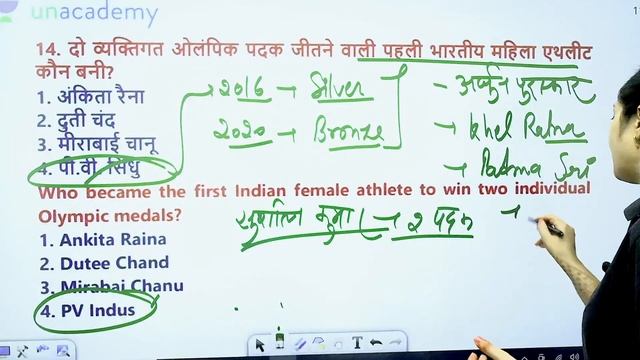 unacademy
14. दो व्यक्तिगत ओलंपिक पदक जीतने वाली पहली भारतीय महिला एथलीट
कौन बनी?
1. अंकिता रैना
2. दुती चंद
3. मीराबाई चानू
4. पी.वी. सिंधु
2016 → Silver
2020 → Bronze
- अर्जुन पुरस्कार
→ khel Ratna
→ Padma Seri
Who became the first Indian female athlete to win two individual
Olympic medals?
1. Ankita Raina
2. Dutee Chand
3. Mirabai Chanu
4. PV Indus
कुमार → 2 पदक →